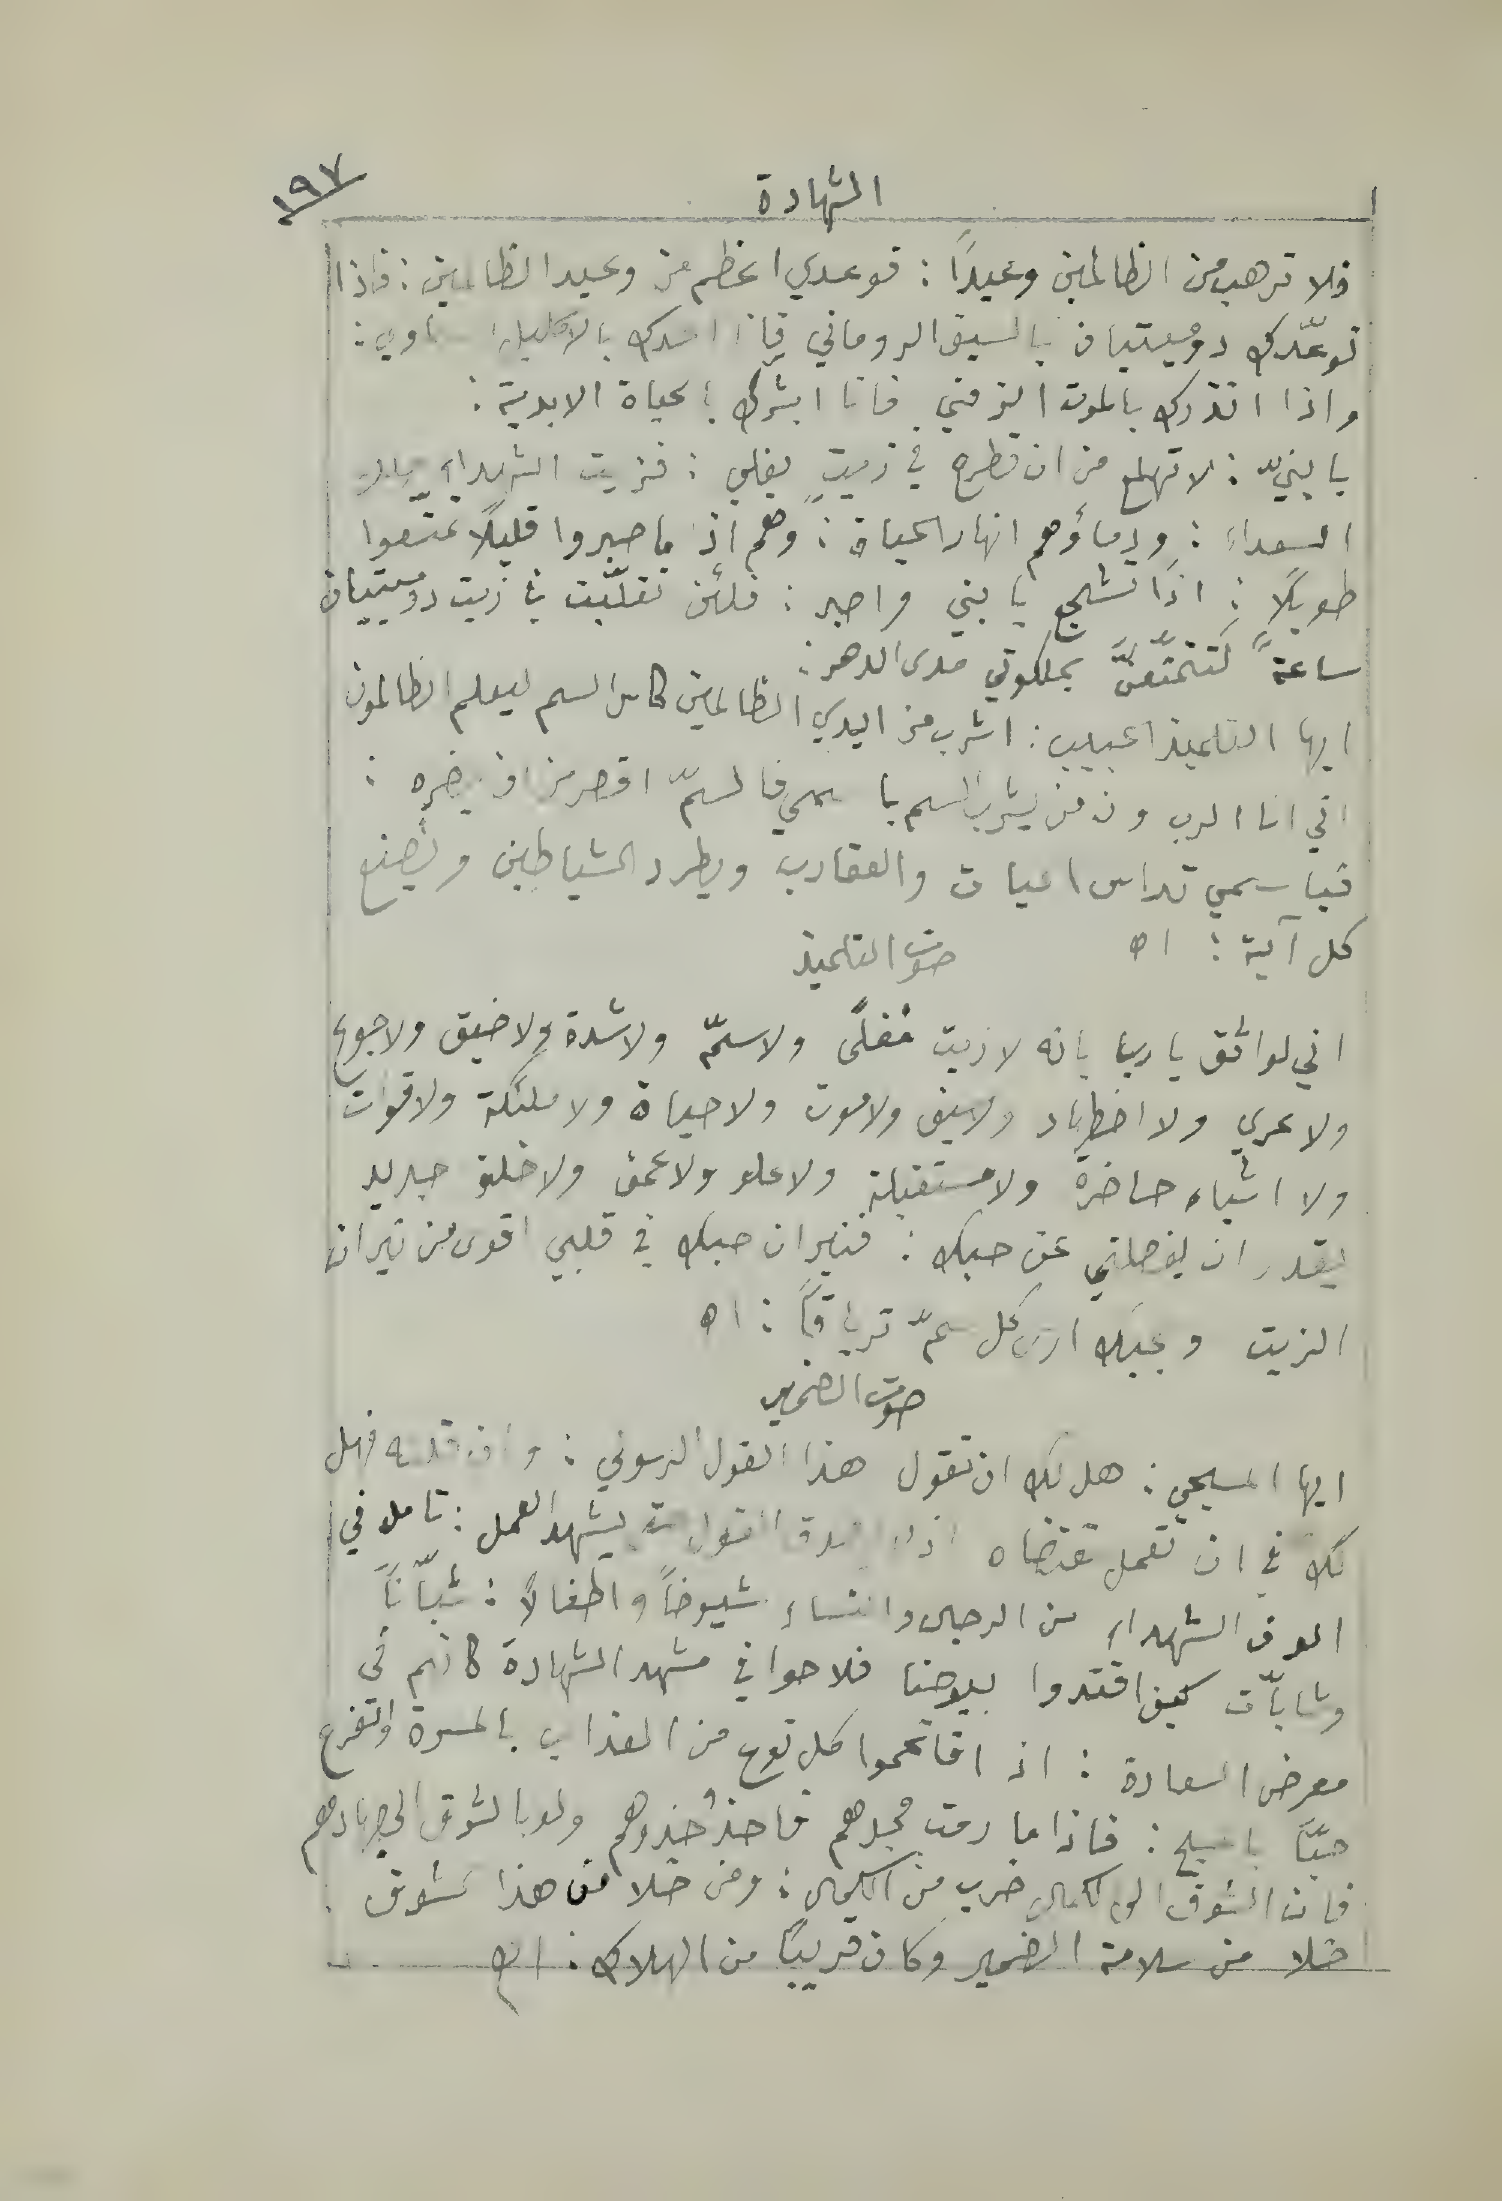 ١٩٧
الشهادة
فلا ترهب من الظالمين وعيداً : فوعدي اعظم من وعيد الظالمين : فاذا
توعّدك دوميتيان بالسيف الروماني فانا اعدك بالاكليل
واذا انذرك بالموت الزمني فانا ابشرك بالحياة الابدية :
يا بنيّ : لا تهلع من ان تطرح في زيتٍ يغلي : فزيت الشهداء
السعداء : ودماؤهم انهار الحياة : وهم اذ ما صبروا قليلاً تمتعوا
طويلاً : اذاً تشجع يا بني واصبر : فلئن تقلّبت في زيت دوميتيان
ساعةً لتتمتّعنَّ بملكوتي مدى الدهر :
ايها التلميذ الحبيب : اشرب من ايدي الظالمين كاس السم ليعلم الظالمون
اني انا الرب وان من يشرب السم باسمي فالسمّ اقصر من ان يضره :
فباسمي تداس الحيات والعقارب ويطرد الشياطين وتصنع
كل آية : اه
صوت التلميذ
اني لواثق يا رب بانه لا زيت مُغلًى ولا سمّ ولا شدة ولا ضيق ولا جوع
ولا عري ولا اضطهاد ولا سيف ولا موت ولا حياة ولا ملئكة ولا قوات
ولا اشياء حاضرة ولا مستقبلة ولا علو ولا عمق ولا خلق جديد
يقدر ان يفصلني عن حبك : فنيران حبك في قلبي اقوى من نيران
الزيت وبحبك ارى كل سمّ ترياقاً : اه
صوت الضمير
ايها المسيحي : هل لك ان تقول هذا القول الرسولي : وان قلته فهل
لك في ان تعمل بمقتضاه القول يشهد العمل : تامل في
الوف الشهداء من الرجال والنساء شيوخاً واطفالاً : شبّاناً
وشابّات كيف اقتدوا بيوحنا فلاحوا في مشهد الشهادة كانهم في
معرض السعادة : اذ اقتحموا كل نوع من العذاب بالمسرة والفرح
حبّاً بالمسيح : فاذا ما رمت مجدهم فاحذُ حذوهم ولو بالشوق الى جهادهم
فان الشوق الى الكمال ضرب من الكمال : ومن خلا من هذا الشوق
خلا من سلامة الضمير وكان قريباً من الهلاك : اه